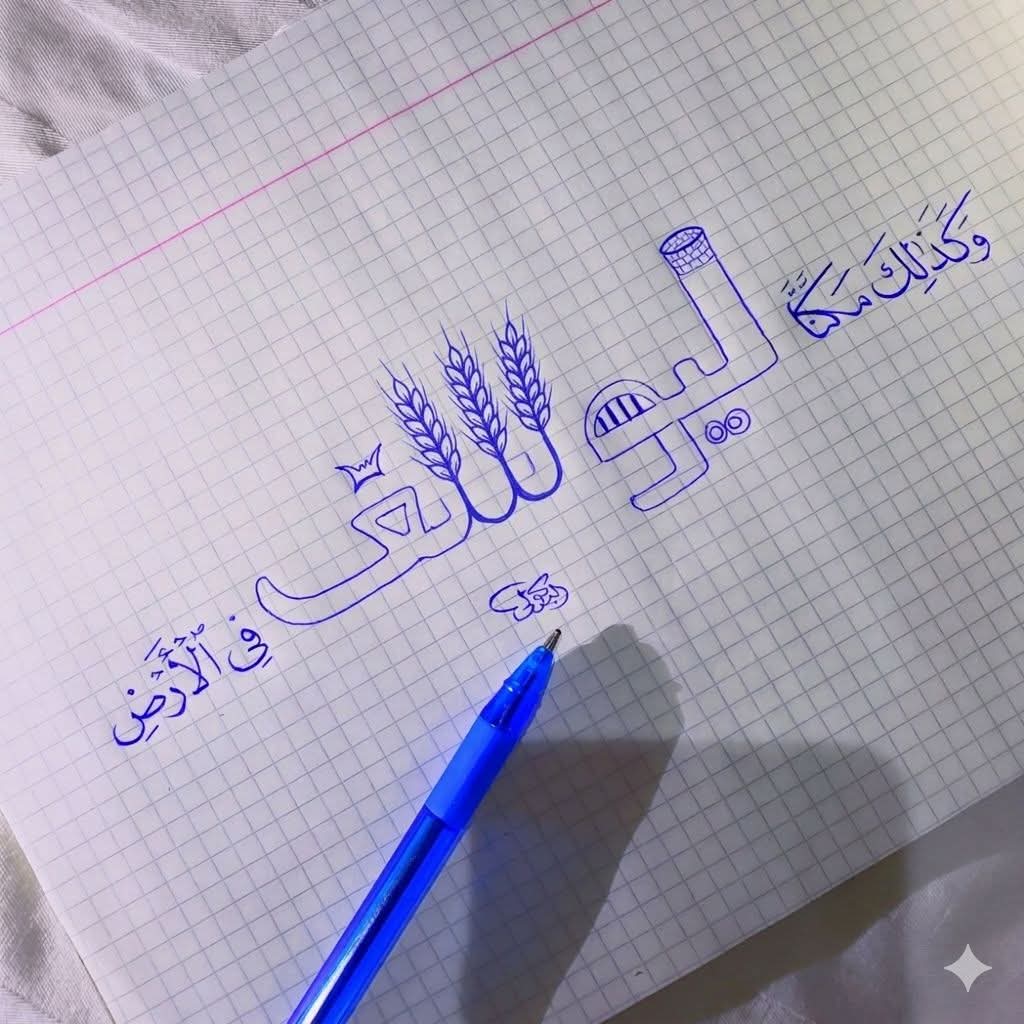 وَكَذَٰلِكَ مَكَنَّا ليوسف فِي الْأَرْضِ